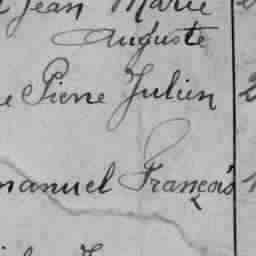 Jean Marie
Auguste
e Pierre Julien
manuel François